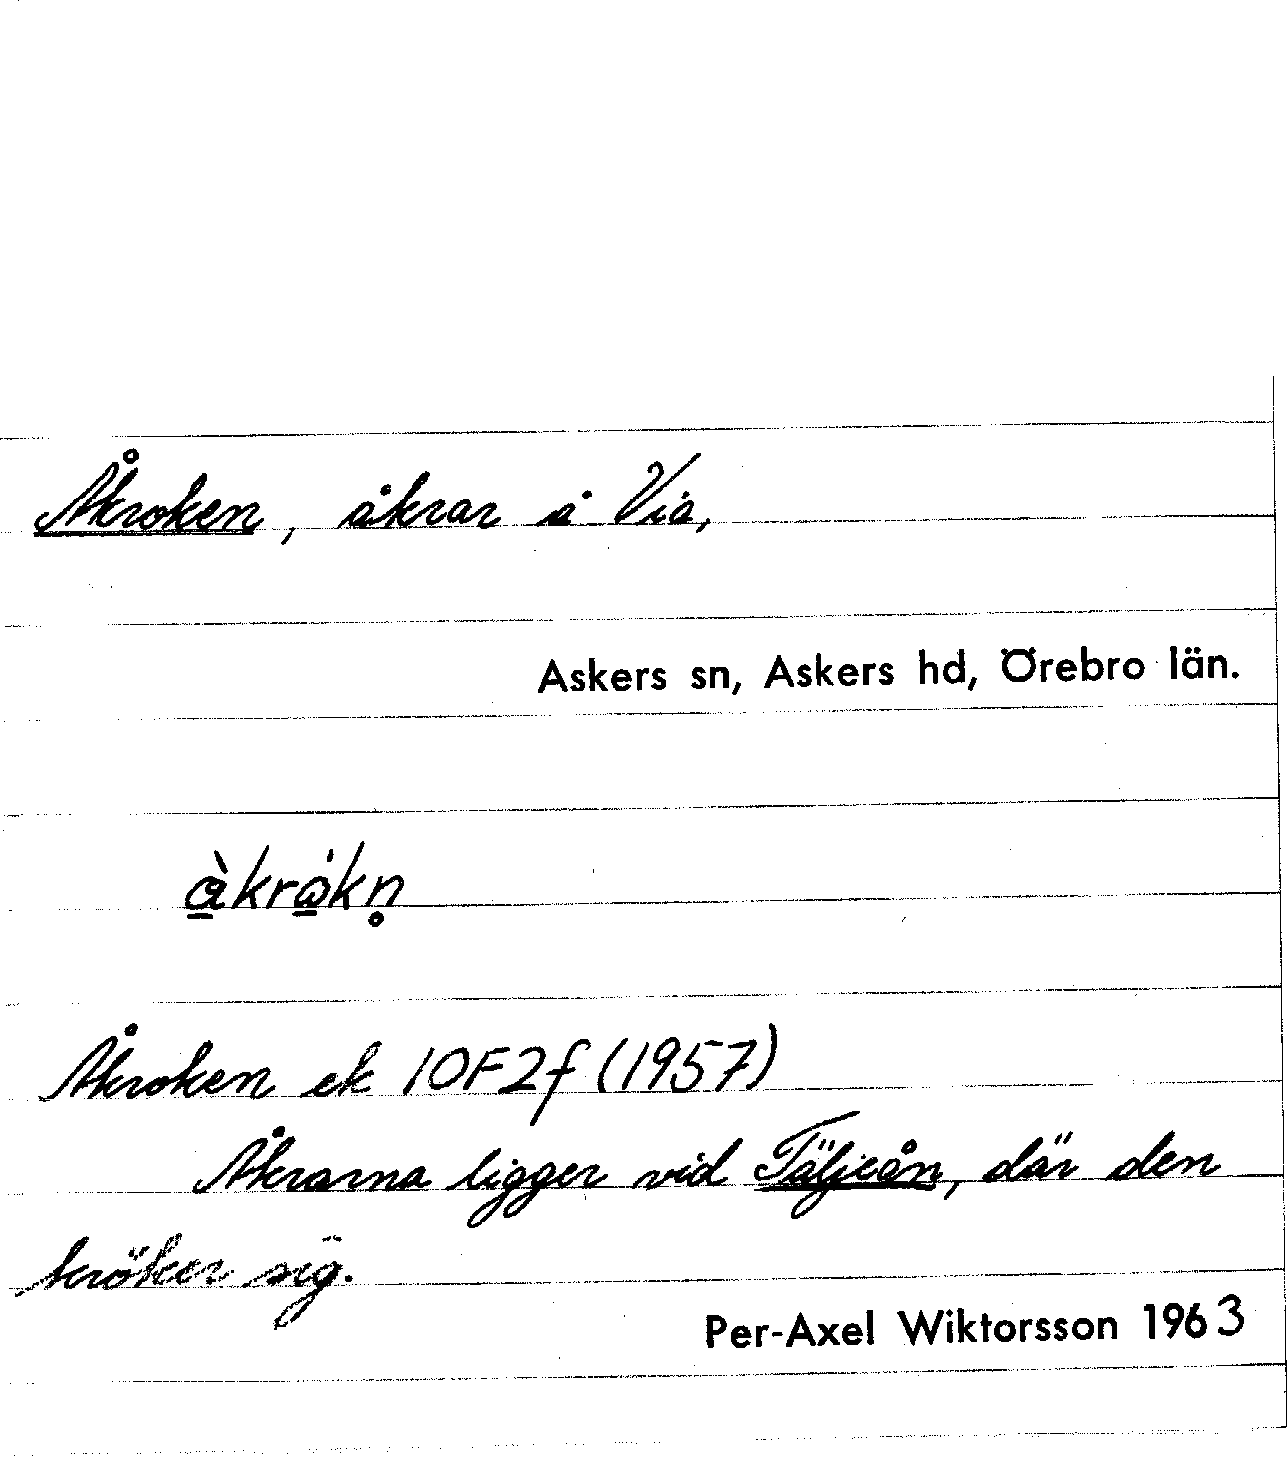 Åkroken, åkrar å Via,
Askers sn, Askers hd, Örebro län.
à̲kra̲̍kn̥
Åkroken ek 10F2f (1957)
Åkrarna ligger vid Täljeån, där den
kröker sig.
Per-Axel Wiktorsson 1963